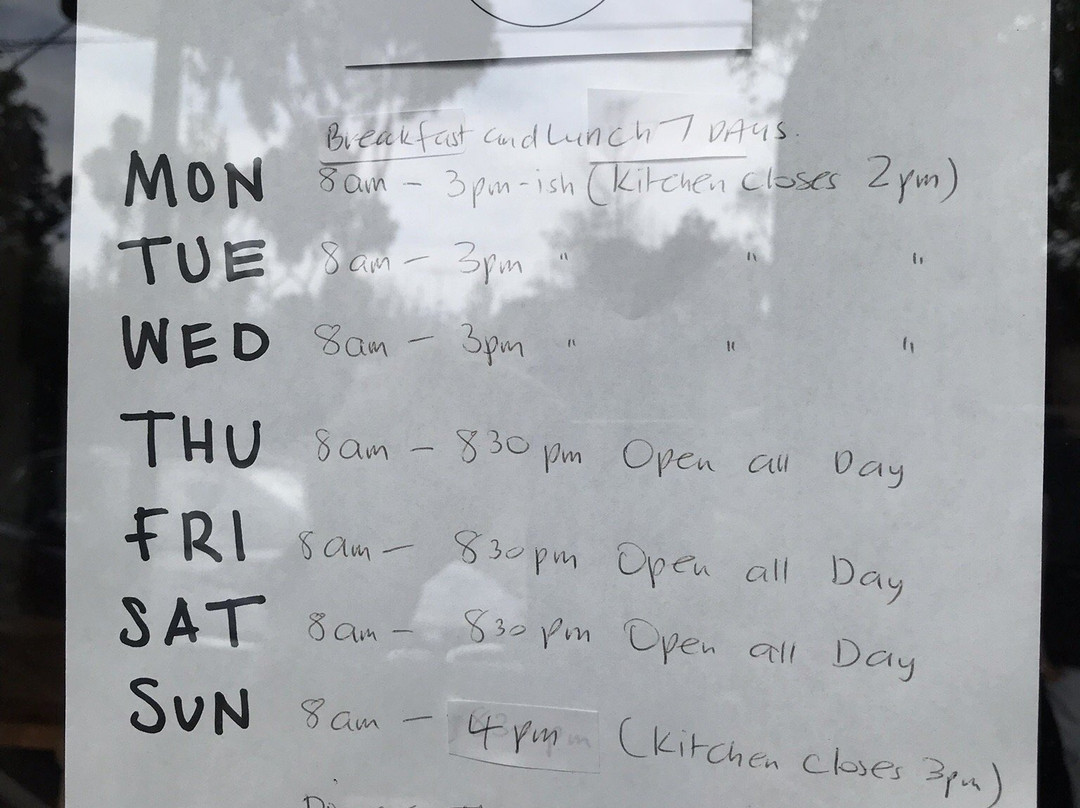 Breakfast and Lunch 7 DAYS.
MON 8am - 3pm-ish (Kitchen closes 2pm)
TUE 8am - 3pm " " "
WED 8am - 3pm " " "
THU 8am - 830pm Open all Day
FRI 8am - 830pm Open all Day
SAT 8am - 830pm Open all Day
SUN 8am - 4pm (Kitchen closes 3pm)